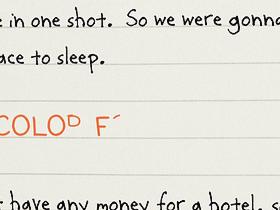 e in one shot. So we were gonna
ace to sleep.
have any money for a hotel, s